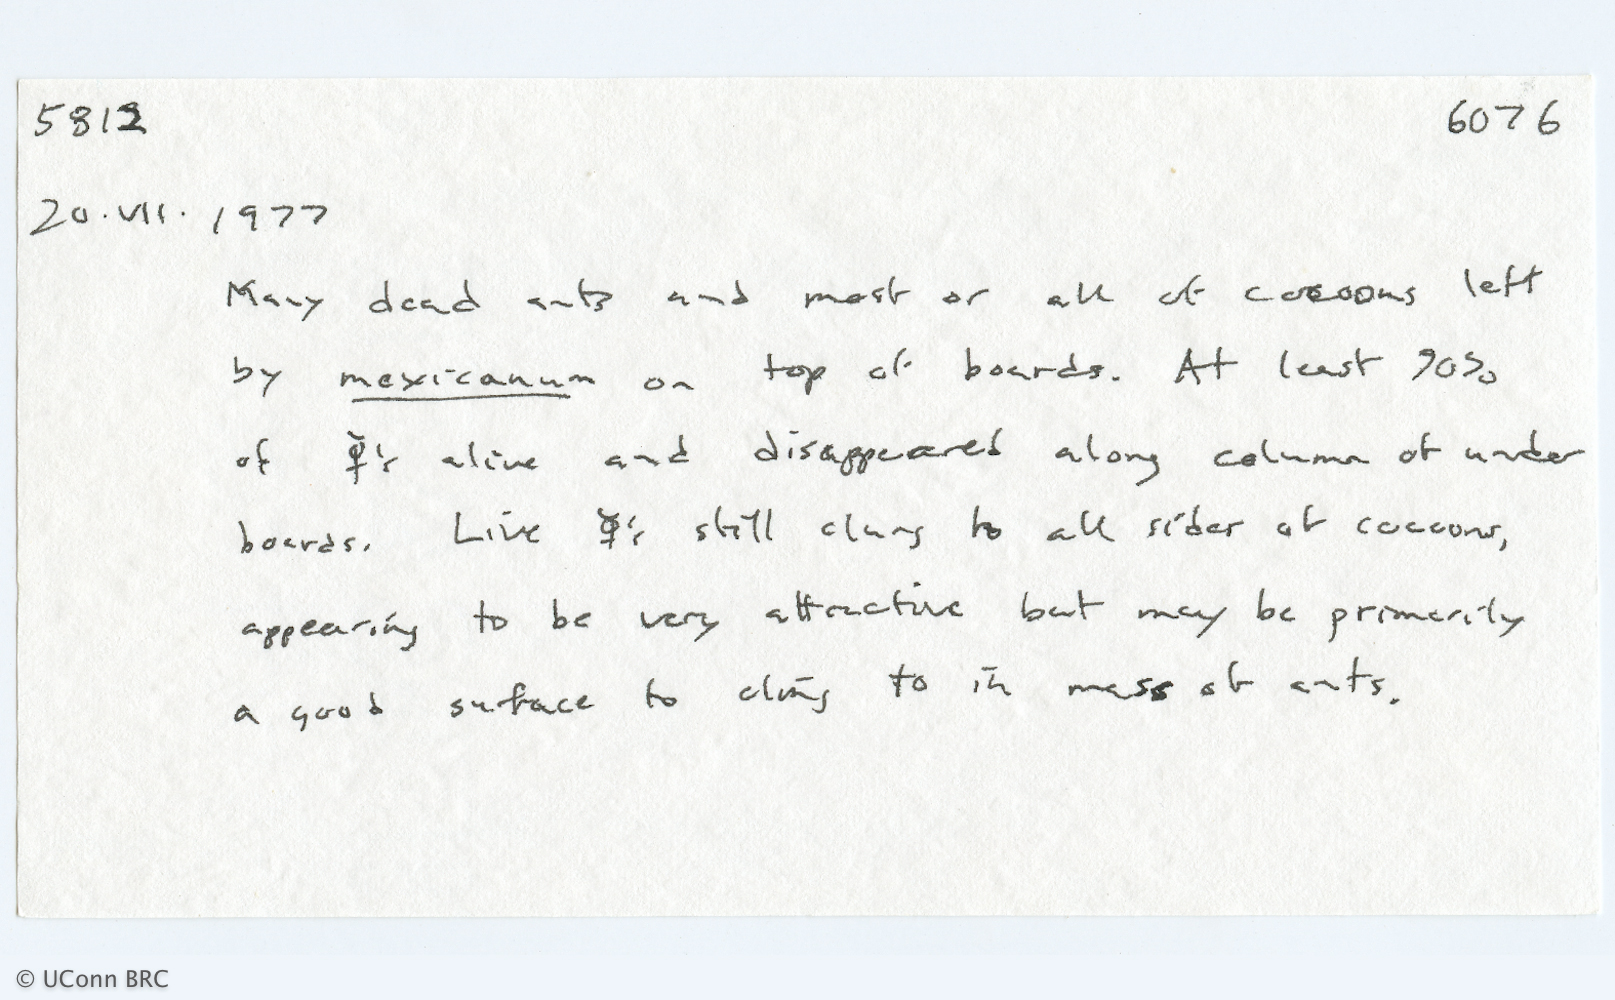 5812 6076
20.VII.1977
Many dead ants and most or all of cocoons left
by mexicanum on top of boards. At least 90%
of ☿'s alive and disappeared along column of under
boards. Live ☿'s still clung to all sides of cocoons,
appearing to be very attractive but may be primarily
a good surface to cling to in mass of ants.
© UConn BRC